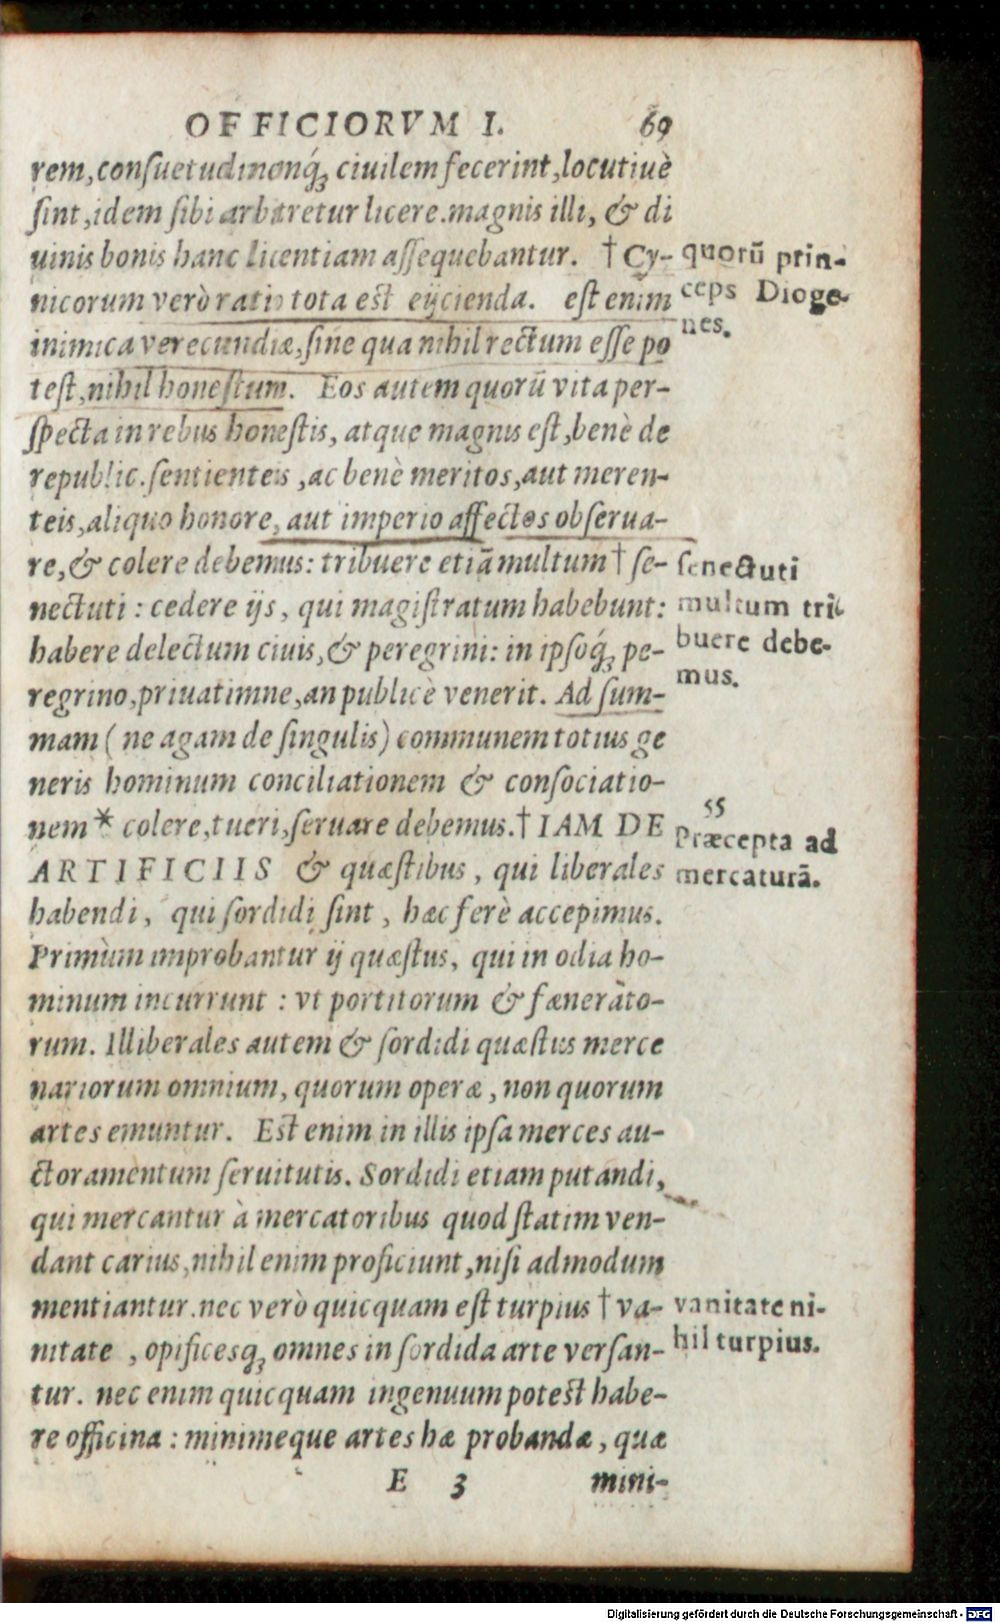 OFFICIORVM I. 69
rem, conſuetudinemq́; ciuilem fecerint, locutiuè
ſint, idem ſibi arbitretur licere. magnis illi, & di
uinis bonis hanc licentiam aſſequebantur. † Cy-
nicorum verò ratio tota est eijcienda. eſt enim
inimica verecundiæ, ſine qua nihil rectum eſſe po
teſt, nihil honeſtum. Eos autem quorū vita per-
ſpecta in rebus honeſtis, atque magnis eſt, benè de
republic. ſentienteis, ac benè meritos, aut meren-
teis, aliquo honore, aut imperio affectos obſerua-
re, & colere debemus: tribuere etiā multum † ſe-
nectuti: cedere ijs, qui magiſtratum habebunt:
habere delectum ciuis, & peregrini: in ipſoq́; pe-
regrino, priuatimne, an publicè venerit. Ad ſum-
mam (ne agam de ſingulis) communem totius ge
neris hominum conciliationem & conſociatio-
nem * colere, tueri, ſeruare debemus. † IAM DE
ARTIFICIIS & quæſtibus, qui liberales
habendi, qui ſordidi ſint, hæc ferè accepimus.
Primùm improbantur ij quæſtus, qui in odia ho-
minum incurrunt: vt portitorum & fænerato-
rum. Illiberales autem & ſordidi quæſtus merce
nariorum omnium, quorum operæ, non quorum
artes emuntur. Est enim in illis ipſa merces au-
ctoramentum ſeruitutis. Sordidi etiam putandi,
qui mercantur à mercatoribus quod ſtatim ven-
dant carius, nihil enim proficiunt, niſi admodum
mentiantur. nec verò quicquam eſt turpius † va-
nitate, opificesq; omnes in ſordida arte verſan-
tur. nec enim quicquam ingenuum potest habe-
re officina: minimeque artes hæ probandæ, quæ
E 3 mini-
quorū prin-
ceps Dioge-
nes.
ſenectuti
multum tri
buere debe-
mus.
55
Præcepta ad
mercaturā.
vanitate ni-
hil turpius.
Digitalisierung gefördert durch die Deutsche Forschungsgemeinschaft - DFG